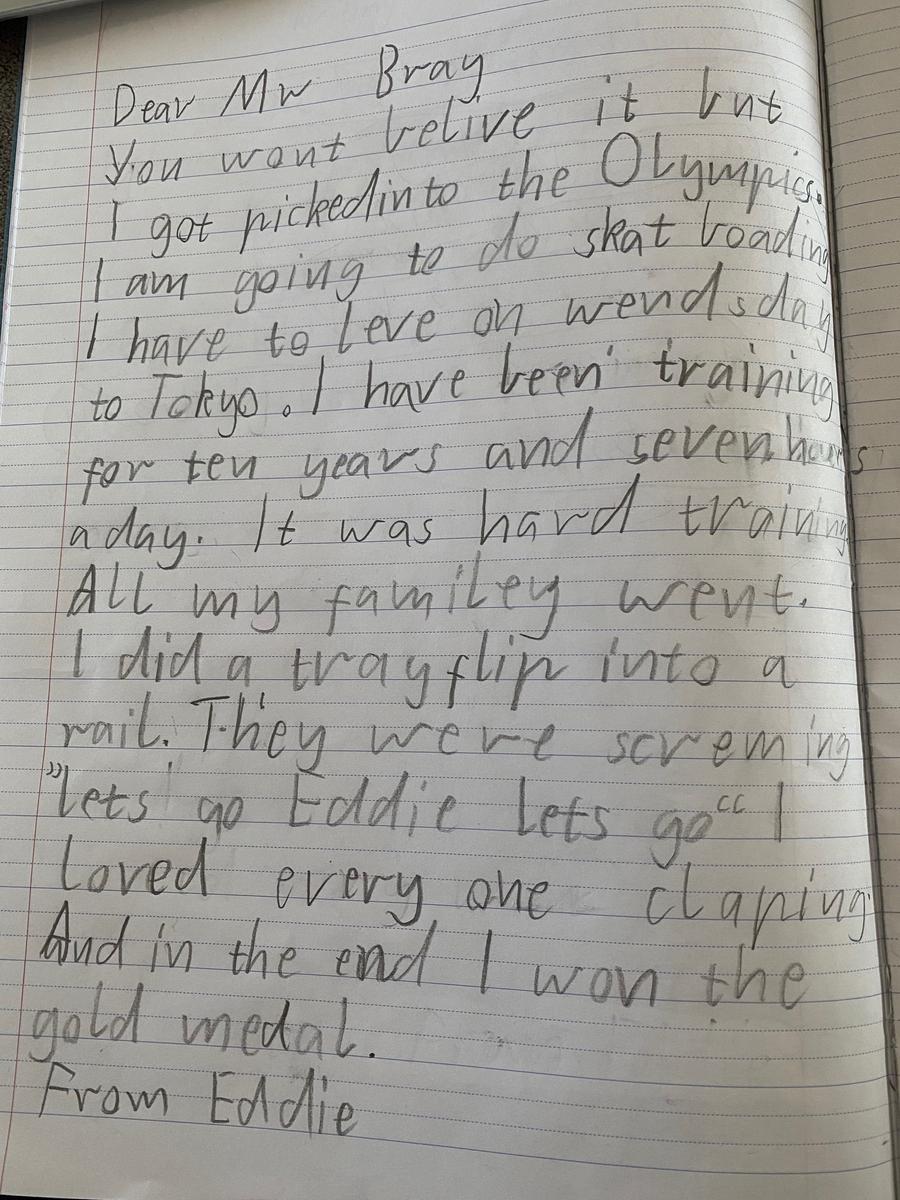 Dear Mr Bray
You wont belive it but
I got pickedinto the Olympics.
I am going to do skat boading
I have to leve on wendsday
to Tokyo. I have been training
for ten years and seven hours
a day. It was hard training
All my familey went.
I did a tray flip into a
rail. They were screming
"lets go Eddie lets go" I
loved every one claping
And in the end I won the
gold medal.
From Eddie